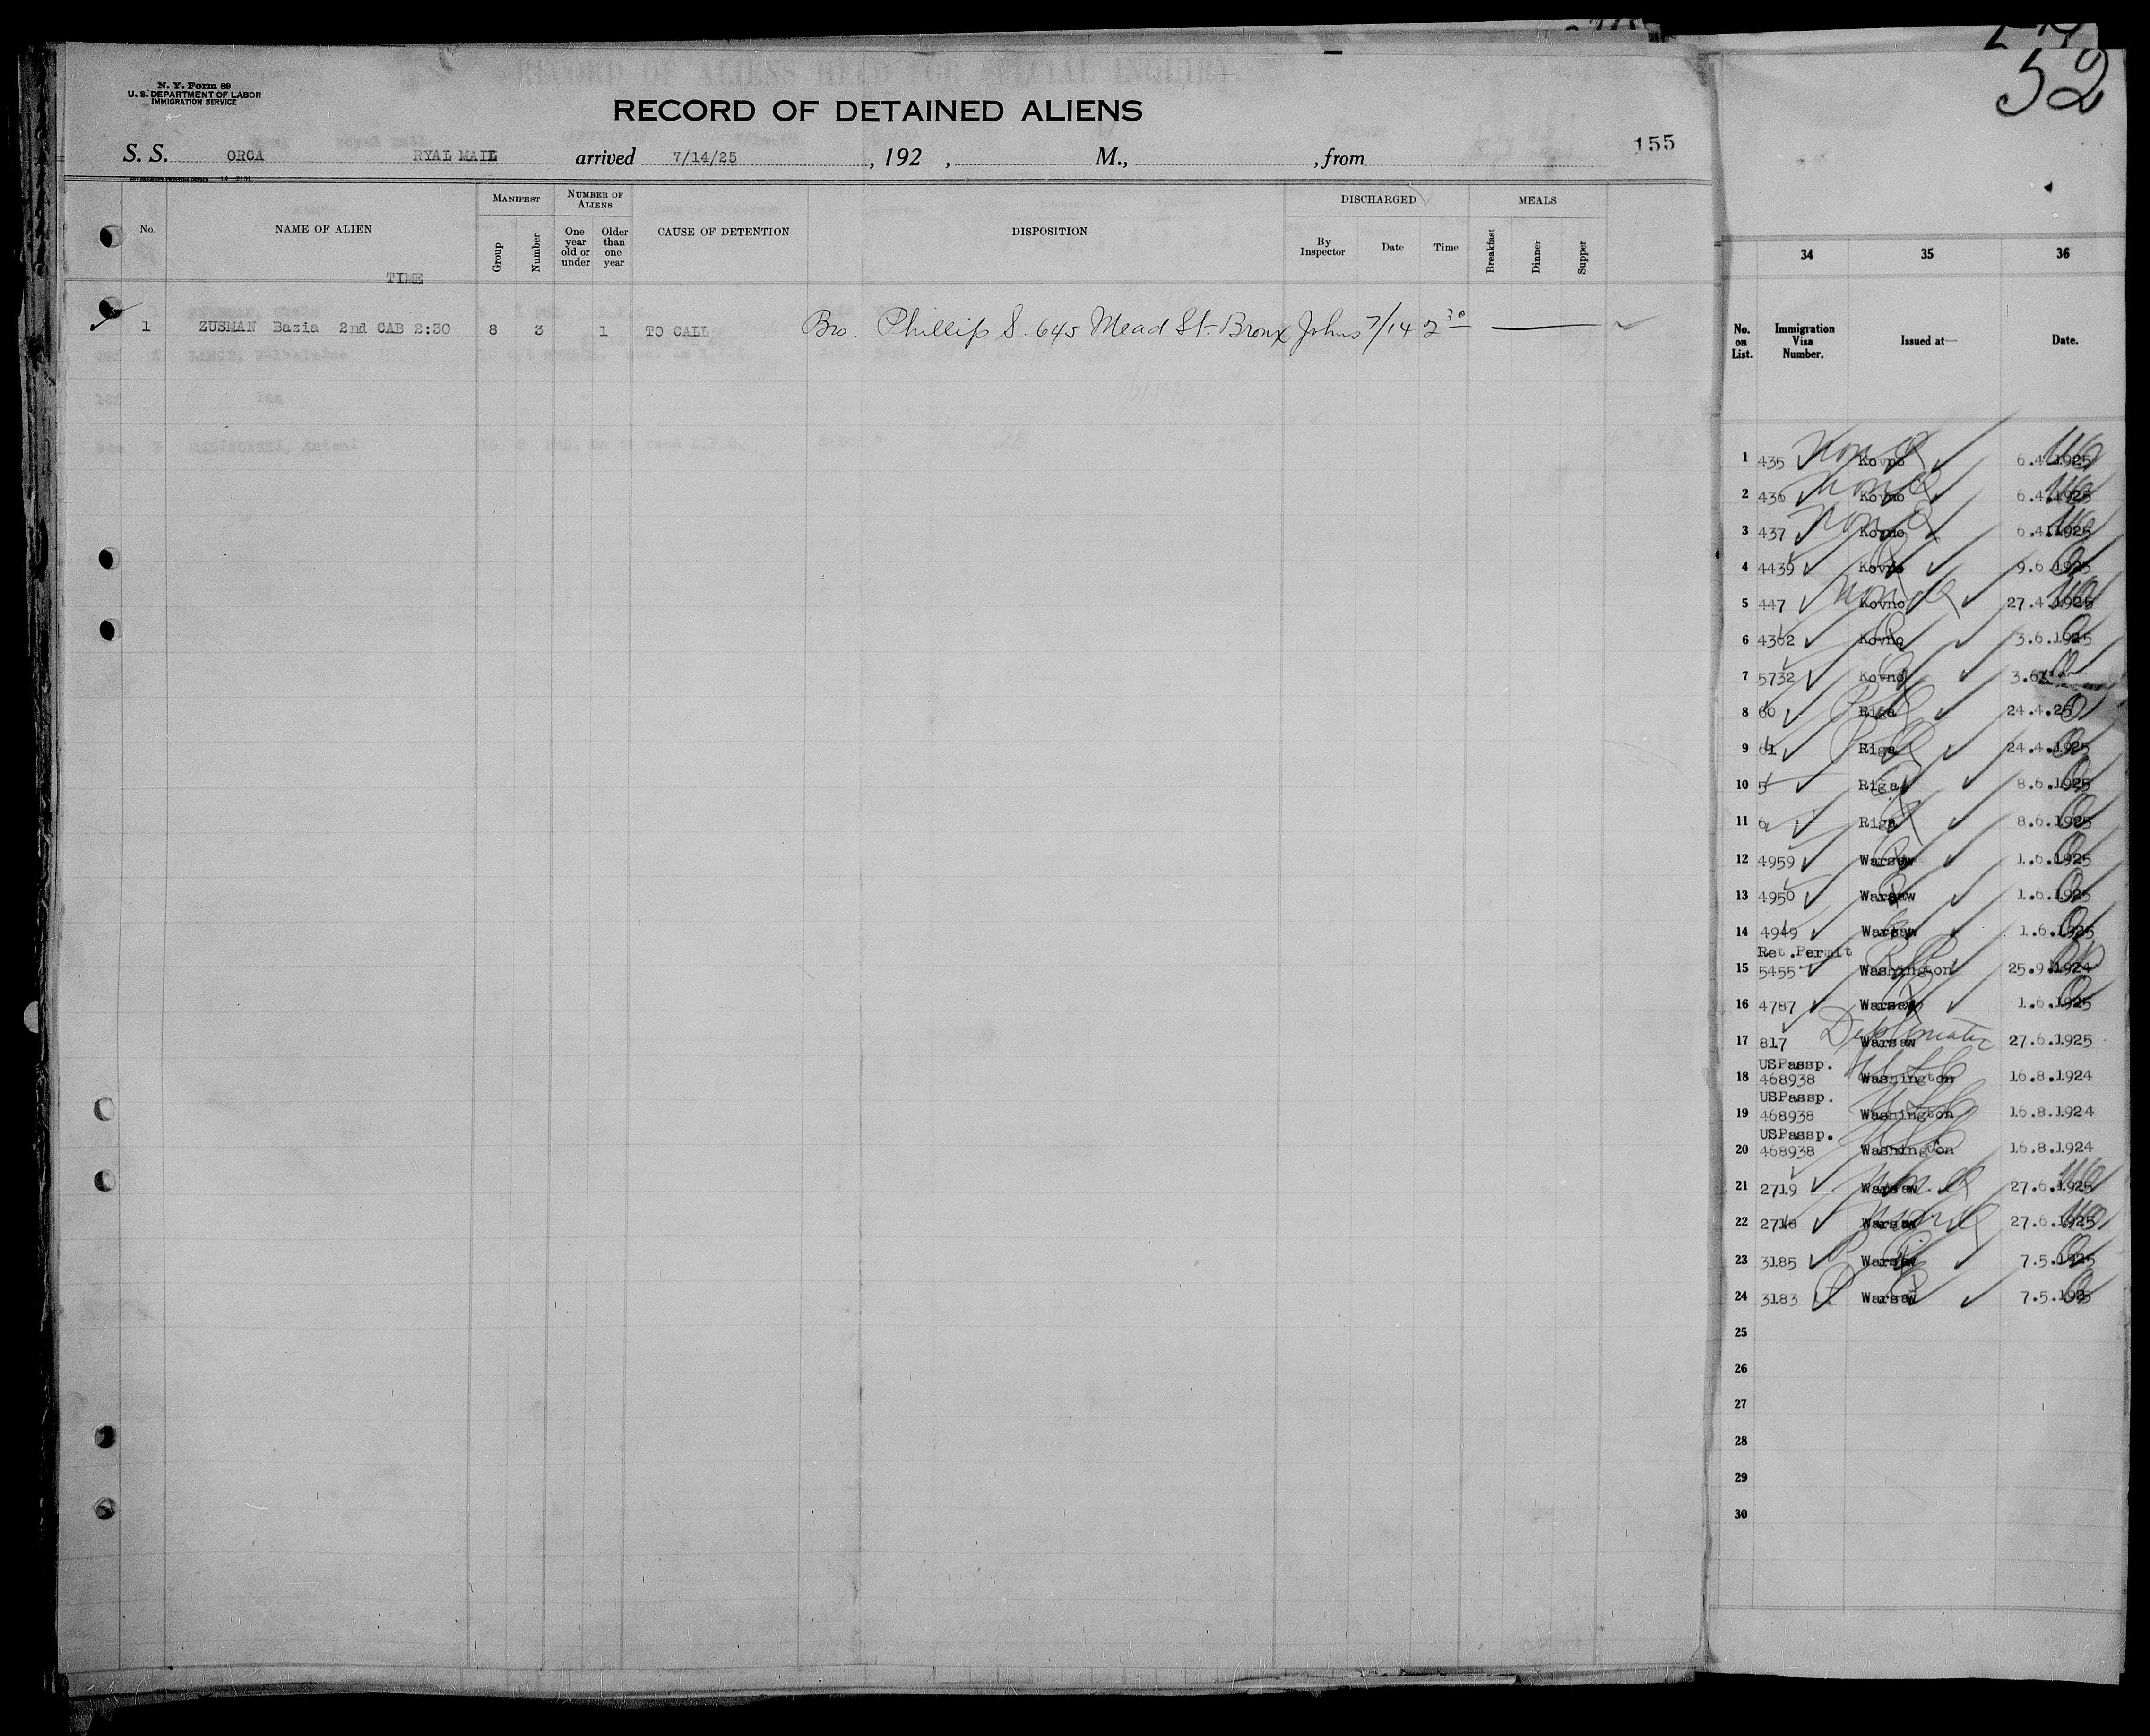 52
N. Y. Form 89
U. S. DEPARTMENT OF LABOR
IMMIGRATION SERVICE
RECORD OF DETAINED ALIENS
155
S. S. ORCA RYAL MAIL arrived 7/14/25 , 192 , M., , from
No. NAME OF ALIEN MANIFEST Group Number NUMBER OF ALIENS One year old or under Older than one year CAUSE OF DETENTION DISPOSITION DISCHARGED By Inspector Date Time MEALS Breakfast Dinner Supper
TIME
1 ZUSMAN Bazia 2nd CAB 2:30 8 3 1 TO CALL Bro. Phillip S. 645 Mead St- Bronx Johns 7/14 2 30
34 35 36
No. on List. Immigration Visa Number. Issued at— Date.
1 435 Non Q Kovno 6.4.1925
2 436 Non Q Kovno 6.4.1925
3 437 Non Q Kovno 6.4.1925
4 4439 Kovno 9.6.1925
5 447 Non Q Kovno 27.4.1925
6 4302 Kovno 3.6.1925
7 5732 Kovno 3.6
8 60 Riga 24.4.25
9 61 Riga 24.4.1925
10 5 Riga 8.6.1925
11 6 Riga 8.6.1925
12 4959 Warsaw 1.6.1925
13 4950 Warsaw 1.6.1925
14 4949 Warsaw 1.6.1925
Ret.Permit
15 5455 Washington 25.9.1924
16 4787 Warsaw 1.6.1925
17 817 Diplomatic Warsaw 27.6.1925
USPassp.
18 468938 Washington 16.8.1924
USPassp.
19 468938 Washington 16.8.1924
USPassp.
20 468938 Washington 16.8.1924
21 2719 Warsaw Non Q 27.6.1925
22 2718 Warsaw Non Q 27.6.1925
23 3185 Warsaw 7.5.1925
24 3183 Warsaw 7.5.1925
25
26
27
28
29
30